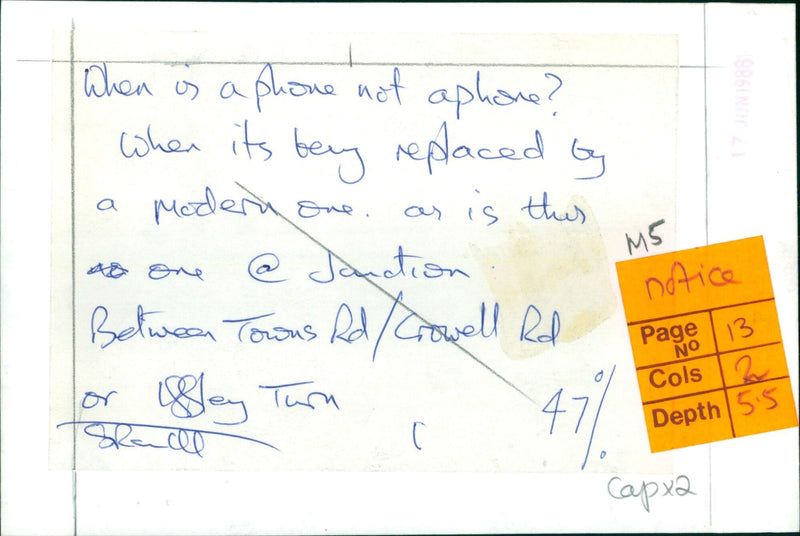 When is a phone not a phone?
When its being replaced by
a modern one. as is this
one @ Junction
Between Towns Rd/Crowell Rd
or Iffley Turn
47%
17 JUN 1988
M5
notice
Page No 13
Cols 2
Depth 5.5
Cap x2